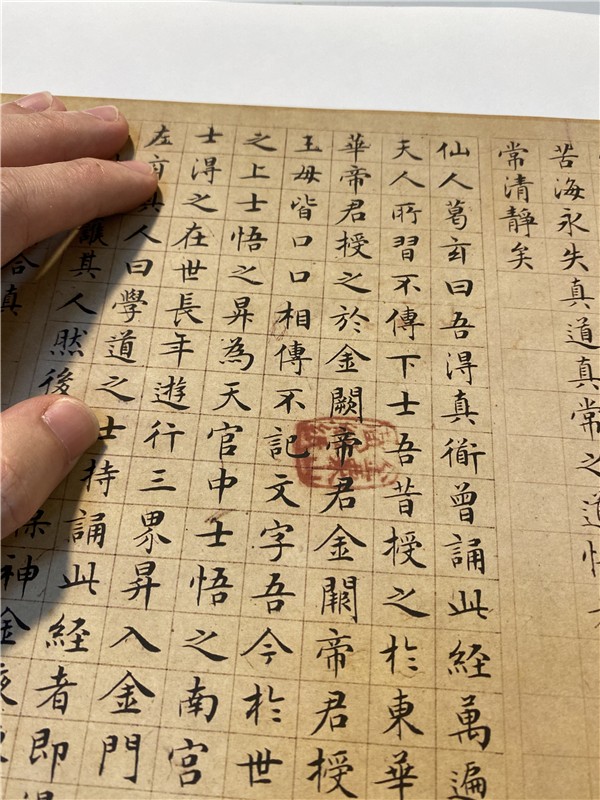 苦海永失真道真常之道悟
常清靜矣
仙人葛玄曰吾得真衜曾誦此経萬遍
天人所習不傳下士吾昔授之於東華
華帝君授之於金闕帝君金闕帝君授
王母皆口口相傳不記文字吾今於世
之上士悟之昇為天官中士悟之南宮
士得之在世長年遊行三界昇入金門
左玄真人曰學道之士持誦此経者即
護其人然後保神金液
合真